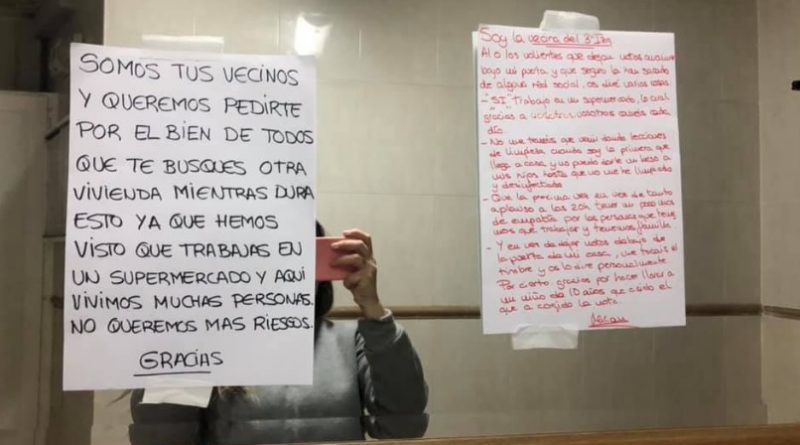 SOMOS TUS VECINOS
Y QUEREMOS PEDIRTE
POR EL BIEN DE TODOS
QUE TE BUSQUES OTRA
VIVIENDA MIENTRAS DURA
ESTO YA QUE HEMOS
VISTO QUE TRABAJAS EN
UN SUPERMERCADO Y AQUI
VIVIMOS MUCHAS PERSONAS.
NO QUEREMOS MAS RIESGOS.
GRACIAS
Soy la vecina del 3º
Al o los valientes que dejan notas
bajo mi puerta, y que seguro la han sacado
de alguna red social, os diré varias cosas.
- "SI" Trabajo en un supermercado, lo cual
gracias a vosotros coméis cada
día.
- No me tenéis que venir dando lecciones
de limpieza cuando soy la primera que
llega a casa y no puedo darle un beso a
mis hijos hasta que no me he limpiado
y desinfectado
- Que la próxima vez en vez de tanto
aplauso a las 20h tener un poco más
de empatía por las personas que tene
mos que trabajar y tenemos familia
- Y en vez de dejar notas debajo de
la puerta de mi casa, me tocáis el
timbre y os lo diré personalmente.
Por cierto, gracias por hacer llorar a
un niño de 10 años que ha sido el
que a cogido la nota.